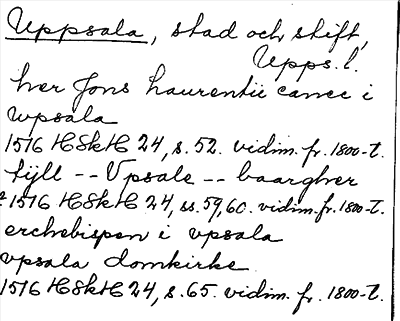 Uppsala, stad och stift,
Upps. l.
her Jons Laurentii canec i
wpsala
1516 HSkH 24, s. 52. vidim. fr. 1800-t.
tijll -- Vpsale -- baargher
1516 HSkH 24, ss. 59, 60. vidim. fr. 1800-t.
erchebispen i vpsala
vpsala domkirke
1516 HSkH 24, s. 65. vidim. fr. 1800-t.